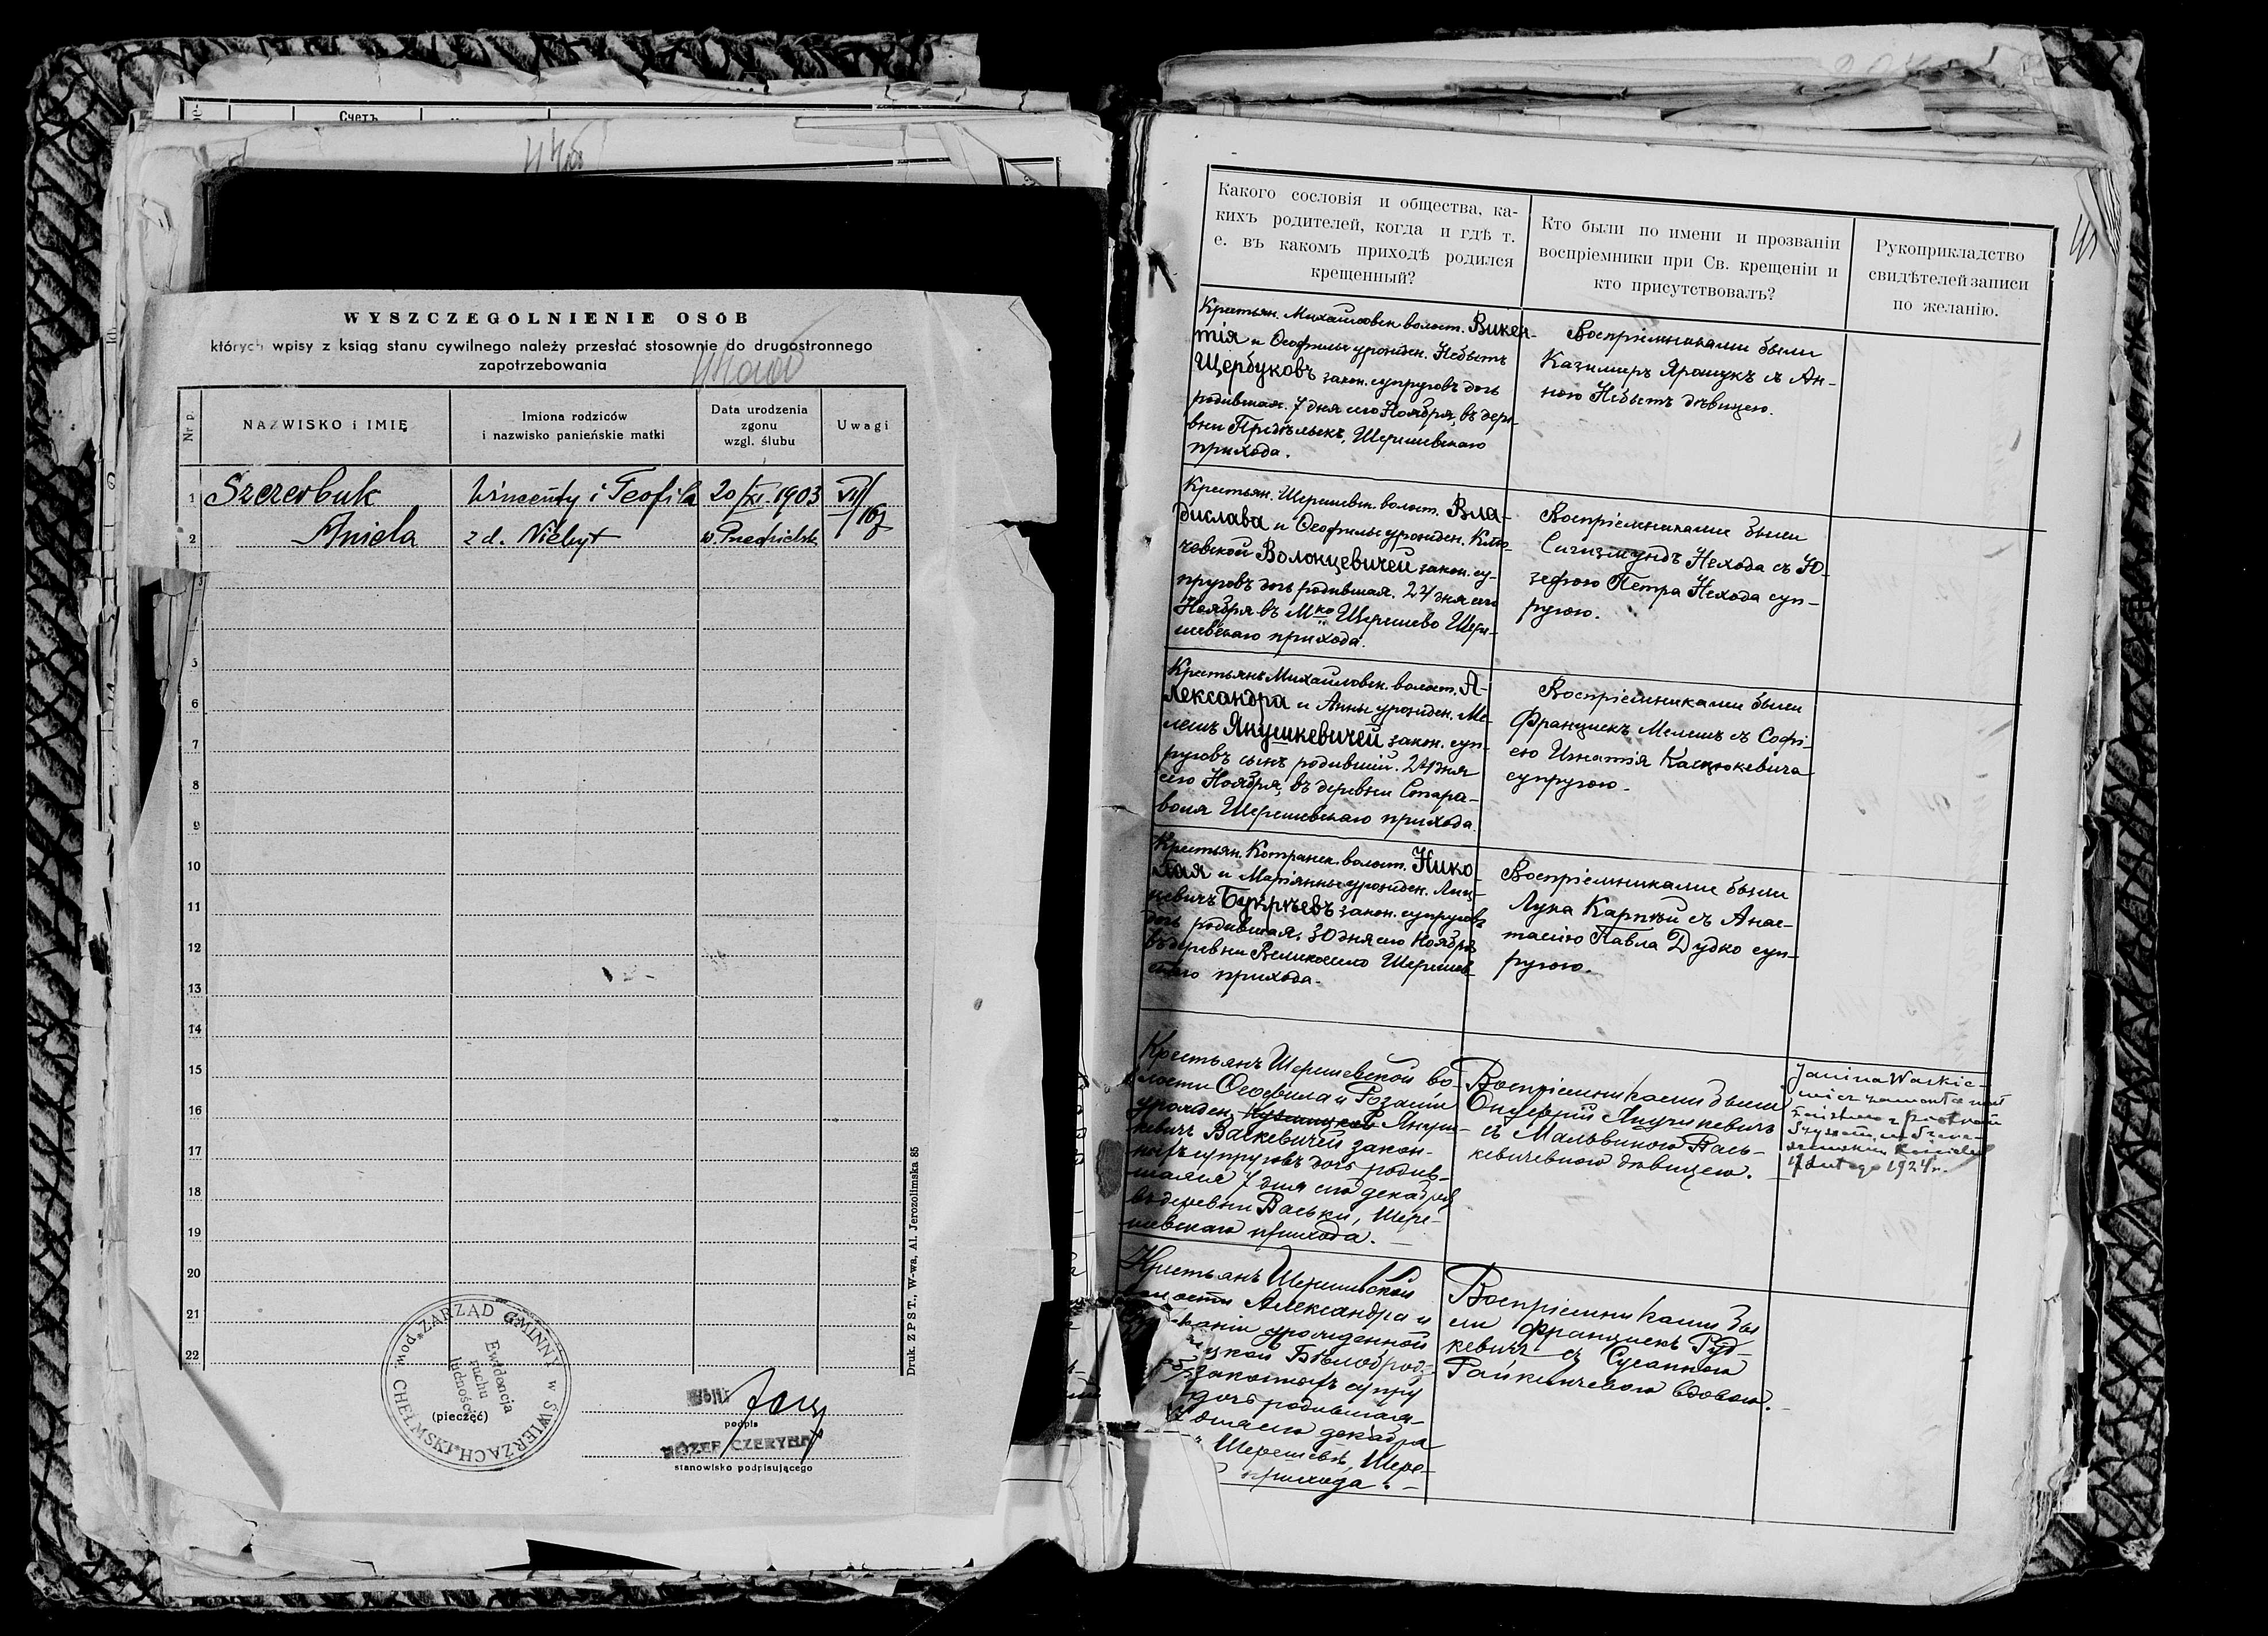 Счетъ
WYSZCZEGÓLNIENIE OSÓB
których wpisy z ksiąg stanu cywilnego należy przesłać stosownie do drugostronnego
zapotrzebowania
Nr p
NAZWISKO i IMIĘ
Imiona rodziców
i nazwisko panieńskie matki
Data urodzenia
zgonu
wzgl. ślubu
Uwagi
1 Szczerbuk Wincenty i Teofila 20/XI.1903
2 Aniela z d. Niebyt
5
6
7
8
9
10
11
12
13
14
15
16
17
18
19
20
21
22
ZARZĄD GMINNY w ŚWIERŻACH pow. CHEŁMSKI
Ewidencja
ruchu
ludności
(pieczęć)
podpis
JÓZEF CZERYBA
stanowisko podpisującego
Druk. Z P S T., W-wa, Al. Jerozolimska 85
Какого сословія и общества, ка-
кихъ родителей, когда и гдѣ т.
е. въ какомъ приходѣ родился
крещенный?
Кто были по имени и прозванiи
воспріемники при Св. крещеніи и
кто присутствовалъ?
Рукоприкладство
свидѣтелей записи
по желанію.
Крестьян. Михайловск. волост. Викен-
тія и Ѳеофилы урожден. Небытъ
Щербуковъ закон. супруговъ дочь
родившая. 7 дня сего Ноября, въ дерев-
вни Придѣльскъ, Шерешевскаго
прихода.
Воспріемниками были
Казимиръ Ярощукъ съ Ан-
ною Небытъ дѣвицею.
Крестьян. Шерешевск. волост. Вла-
дислава и Ѳеофилы урожден. Клю-
човской Волонцевичей закон. су-
пруговъ дочь родившая. 24 дня сего
Ноября въ Мко Шерешево Шере-
шевскаго прихода.
Воспріемниками были
Сигизмундъ Нехода съ Ю-
зефою Петра Нехода суп-
ругою.
Крестьянъ Михайловск. волост. А-
лександра и Анны урожден. Ме-
лешъ Янушкевичей закон. суп-
руговъ сынъ родившій. 24 дня
сего Ноября, въ деревни Стара-
воля Шерешевскаго прихода
Воспріемниками были
Францискъ Мелешъ съ Софі-
ею Игнатія Касцюкевича
супругою.
Крестьян. Котранск. волост. Нико-
лая и Маріанны урожден. Лиц-
кевичъ закон. супруговъ
дочь родившая. 30 дня сего Ноября
въ деревни Великосело Шерешев-
скаго прихода.
Воспріемниками были
Лука Карпѣй съ Анас-
тасіею Павла Дудко суп-
ругою.
Крестьянъ Шерешевской во-
лости Ѳеофила и Розаліи
урожден. Януш-
кевичъ Васкевичей закон-
ныхъ супруговъ дочь родив-
шаяся 7 дня сего декабря
въ деревни Васьки, Шере-
шевскаго прихода.
Воспріемниками были
Онуфрій Янушкевичъ
съ Мальвиною Вась-
кевичевною дѣвицею.
Janina Waskie-
wicz zawarła
4 lutego 1924 r.
Крестьянъ Шерешевской
волости Александра и
урожденной
законныхъ супру
дочь родившая
декабря
Шерешевѣ, Шере-
прихода.
Воспріемниками бы
ли Францискъ Руд-
кевичъ съ Сусанною
Райкевичевою вдовою.